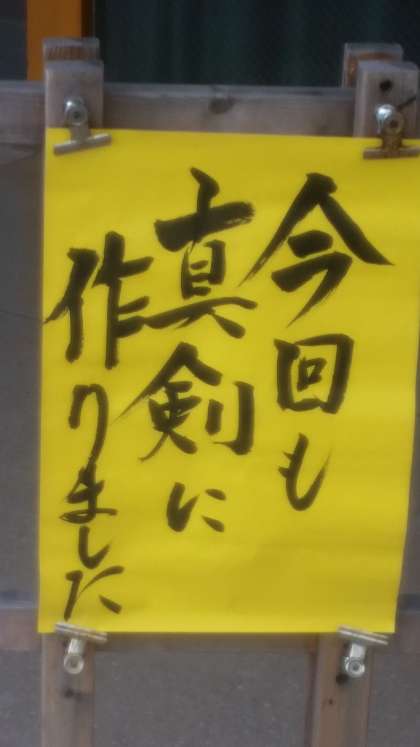 今回も
真剣に
作りました